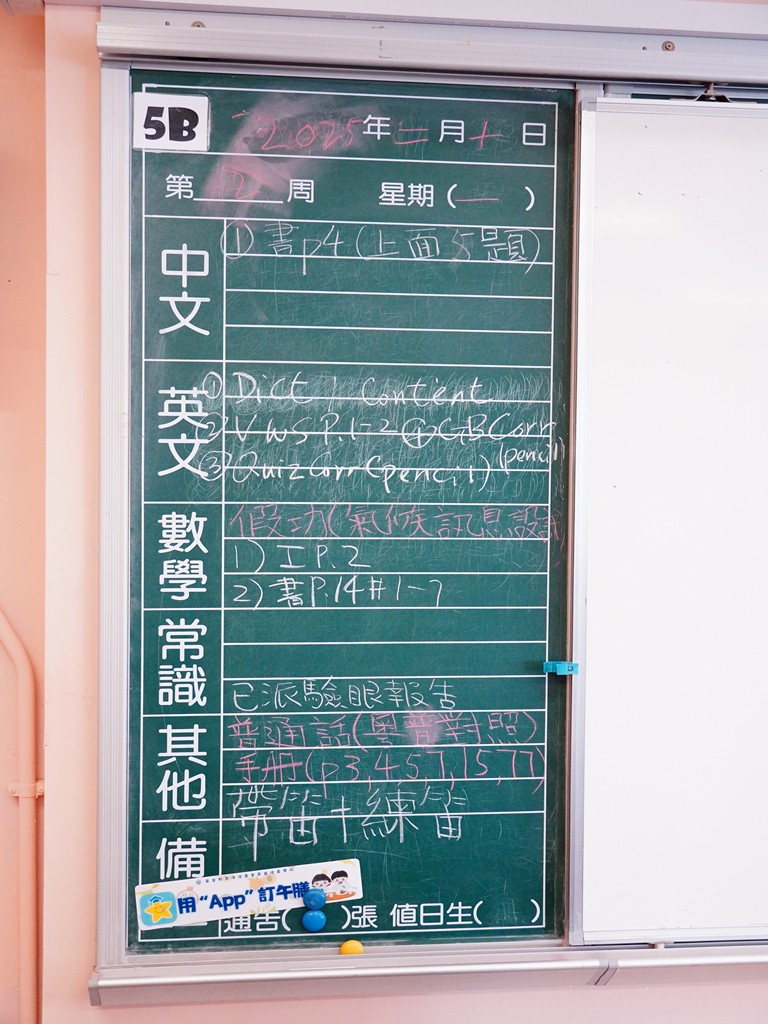 5B
2025年二月十日
第2周 星期(一)
中文
①書p4(上面5題)
英文
① Dict, content
② VWS P.1-2 ④ GB Corr (pencil)
③ Quiz Corr (pencil)
數學
假功(氣候訊息設計
1) 工 P.2
2) 書P.14#1-7
常識
已派驗眼報告
其他
普通話(粵普對照)
手冊(p3,4,5,7,15,77)
帶笛+練笛
備
用“App”訂午膳
通告( )張 值日生( )